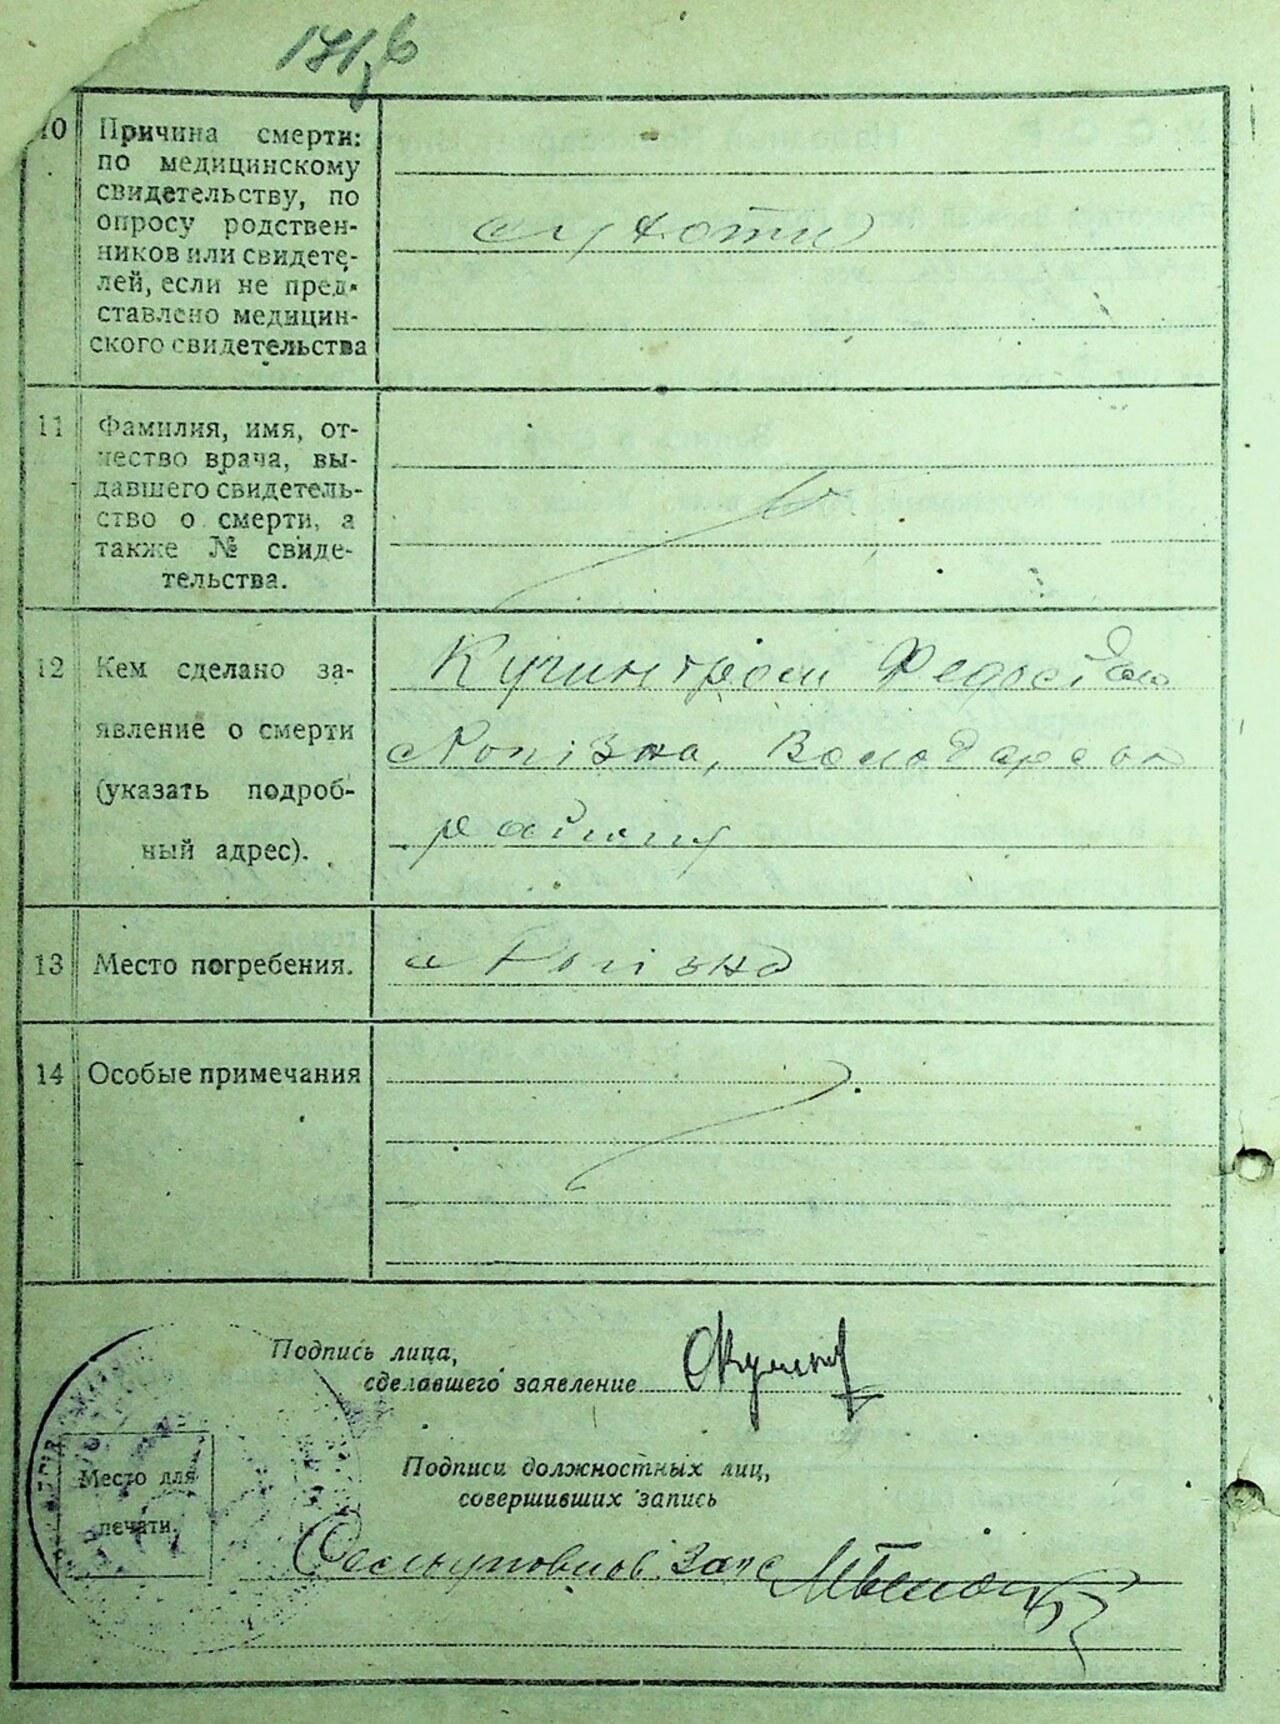 10 Причина смерти:
по медицинскому
свидетельству, по
опросу родствен-
ников или свидете-
лей, если не пред-
ставлено медицин-
ского свидетельства
сухоти
11 Фамилия, имя, от-
чество врача, вы-
давшего свидетель-
ство о смерти, а
также № свиде-
тельства.
12 Кем сделано за-
явление о смерти
(указать подроб-
ный адрес).
Федосій
с Копізна, Володарськ
району
13 Место погребения.
с Копізна
14 Особые примечания
Подпись лица,
сделавшего заявление
Подписи должностных лиц,
совершивших запись
Место для
печати.
загс